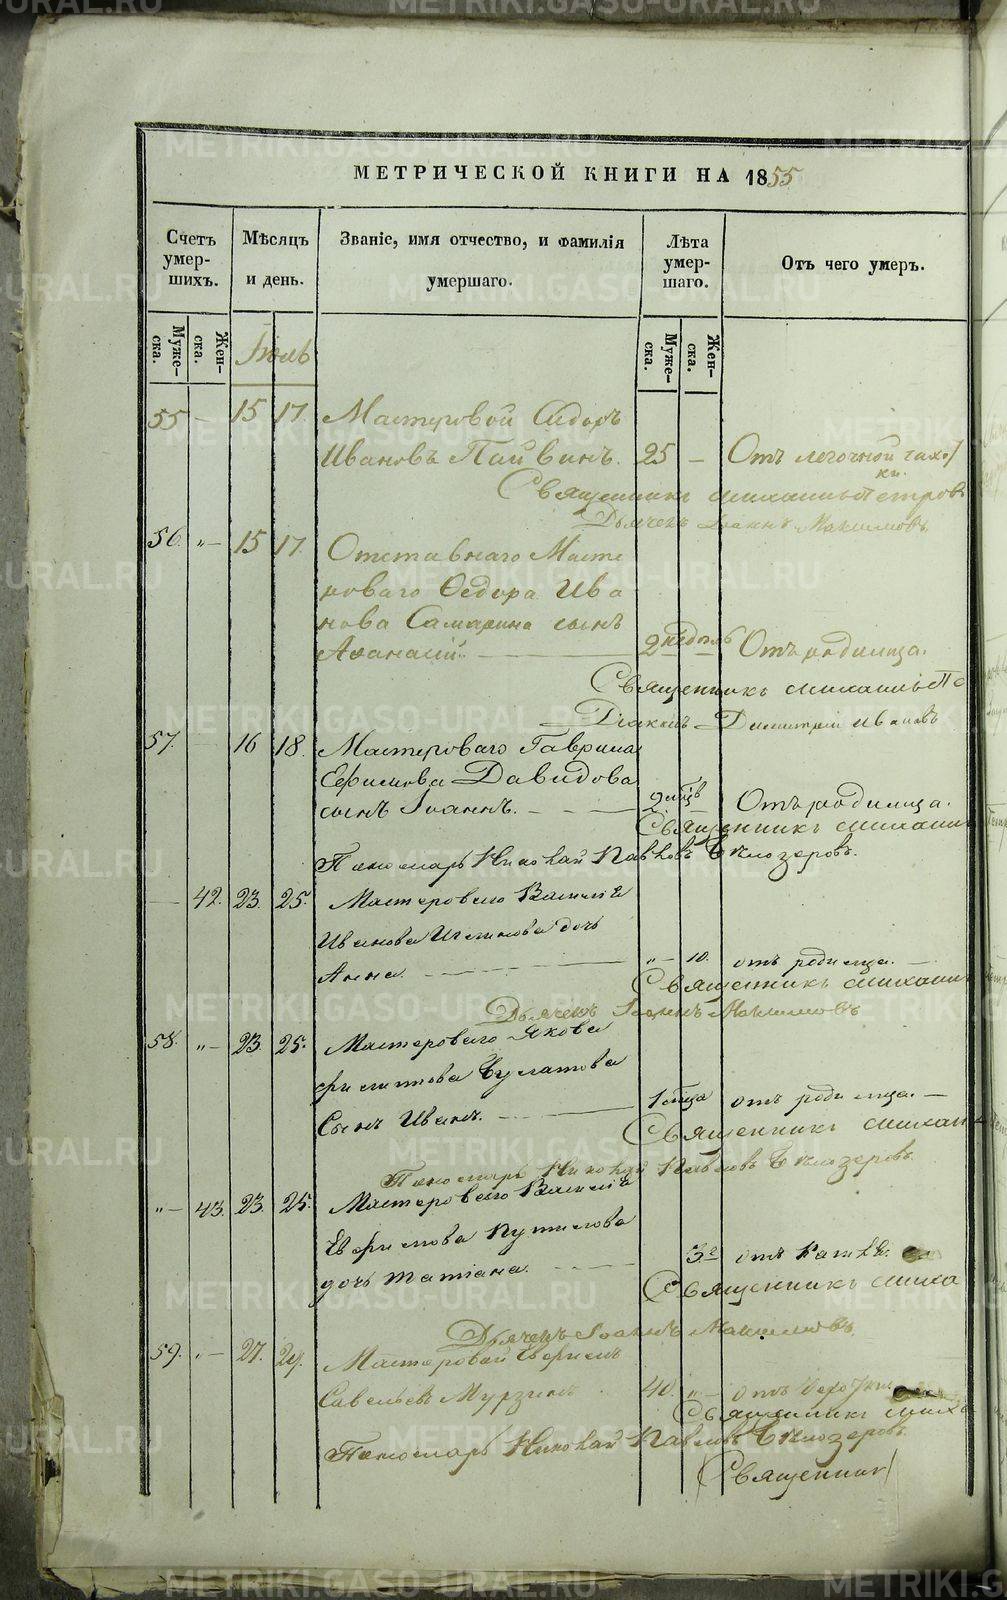 МЕТРИЧЕСКОЙ КНИГИ НА 1855
Счетъ умерших. Мѣсяцъ и день. Званіе, имя отчество, и фамилія умершаго. Лѣта умершаго. Отъ чего умеръ.
Мужеска. Женска. Мужеска. Женска.
Іюль
55 — 15 17. Мастеровой Сидоръ
Ивановъ Пайвинъ. 25 — Отъ легочной чахот
ки.
Священникъ Михаилъ Петровъ
Дьячекъ Іоаннъ Максимовъ
56. „— 15 17. Отставнаго Масте
роваго Ѳедора Ива
нова Самарина сынъ
Аѳанасій. — 2 недѣль Отъ родимца.
Священникъ Михаилъ Пе
Діаконъ Димитрій Ивановъ
57. — 16 18. Мастероваго Гаврила
Ефимова Давидова
сынъ Іоаннъ. — 2 мцъ Отъ родимца.
Священникъ Михаил
Пономарь Николай Павловъ Бѣлозеровъ.
— 42. 23. 25. Мастероваго Василія
Иванова дочь
Анна. — „— 10. отъ родимца. —
Священникъ Михаил
Дьячекъ Іоаннъ Максимовъ
58. „— 23. 25. Мастероваго Якова
Филиппова Булатова
Сынъ Иванъ. — 1 мца отъ родимца. —
Священникъ Михаи
Пономарь Николай Павловъ Бѣлозеровъ.
„— 43. 23. 25. Мастероваго Василія
Евфимова Путилова
дочь Татіана. — 3 отъ кашля.
Священникъ Миха
Дьячекъ Іоаннъ Максимовъ
59. „— 27. 29. Мастеровой Евфимъ
Савельевъ Мурзинъ 40. „— отъ
Священникъ Миха
Пономарь Николай Павловъ Бѣлозеровъ
Священник
METRIKI.GASO-URAL.RU